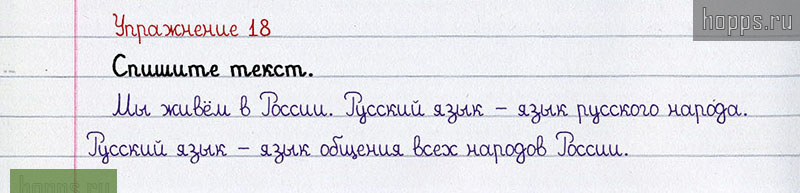 hopps.ru
Упражнение 18
Спишите текст.
Мы живём в России. Русский язык – язык русского народа.
Русский язык – язык общения всех народов России.
hopps.ru